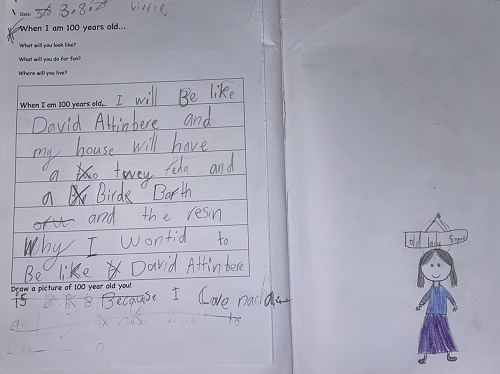 Date: 3.8.21 Livvie
When I am 100 years old...
What will you look like?
What will you do for fun?
Where will you live?
When I am 100 years old... I will Be like
David Attinbere and
my house will have
a twey feda and
a Birde Barth
and the resin
Why I wontid to
Be like David Attinbere
Draw a picture of 100 year old you!
is Because I Love
old lady